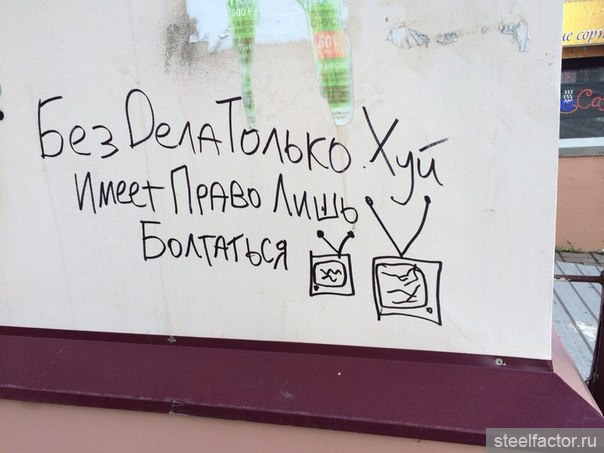 Без Dела Только Хуй
Имеет Право Лишь
Болтаться
steelfactor.ru